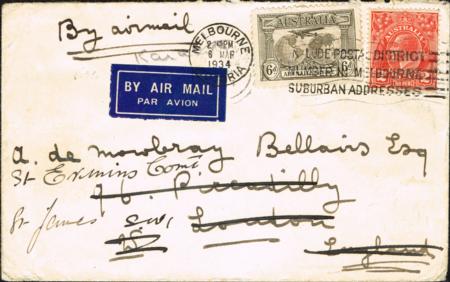 By airmail
MELBOURNE
6 MAR
1934
VICTORIA
AUSTRALIA
6d 6d
AIR MAIL SERVICE
AUSTRALIA
INCLUDE POSTAL DISTRICT
NUMBER IN MELBOURNE
SUBURBAN ADDRESSES
BY AIR MAIL
PAR AVION
A. de Mowbray Bellairs Esq
St Ermins Court
76. Piccadilly
St James' SW1 London
England